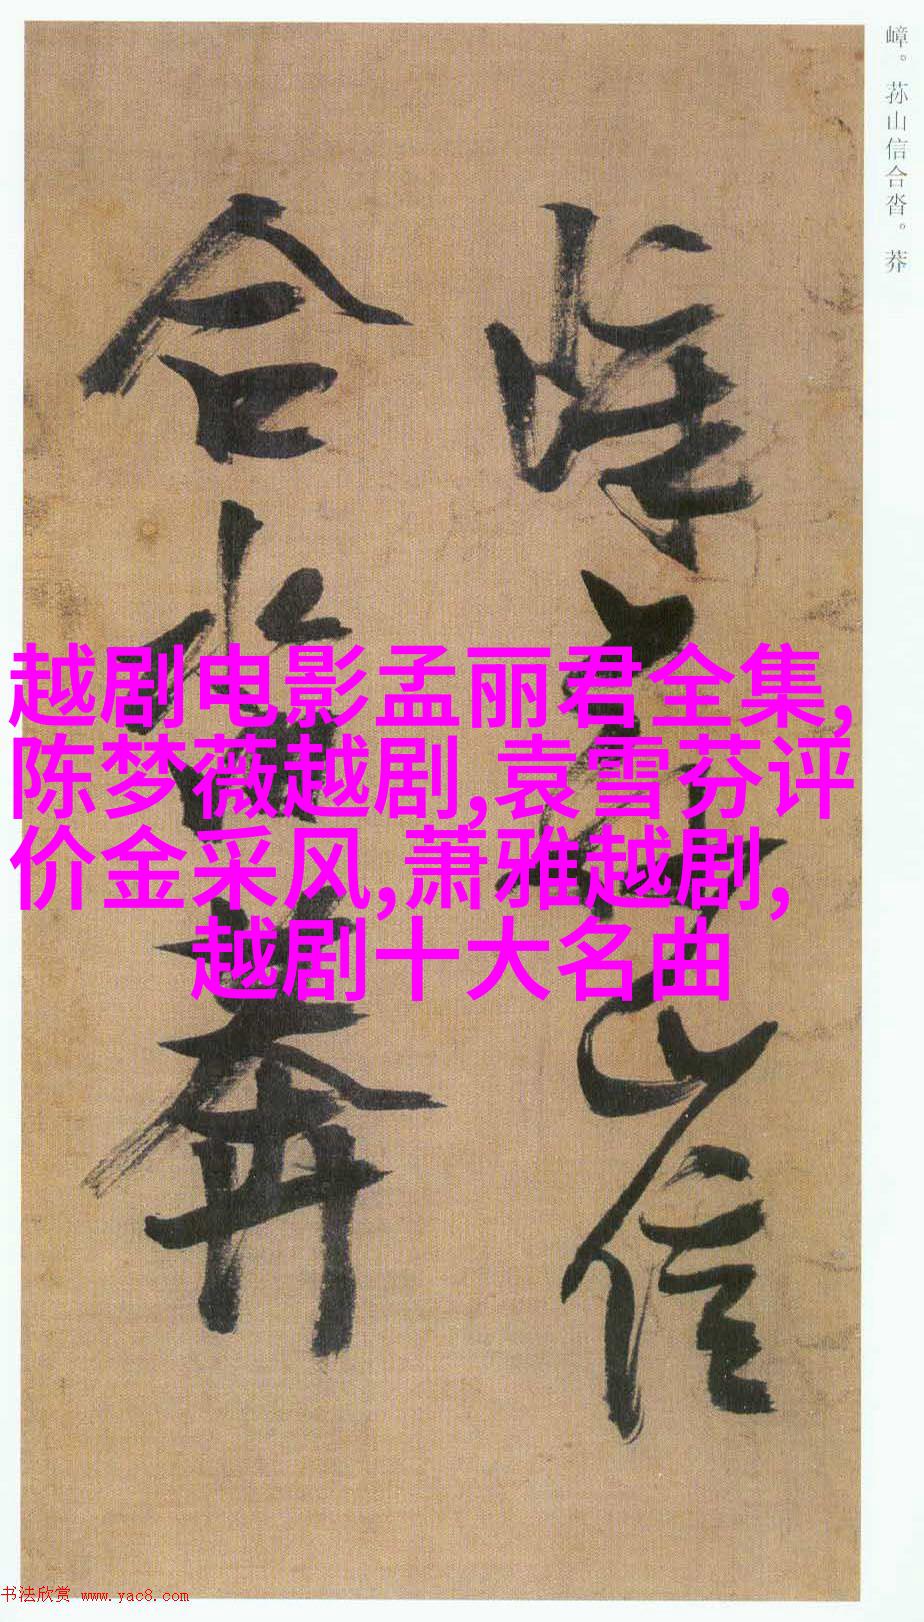 嶂。荪山信合沓。莽
嶂。荪
山
信
合沓莽
越剧电影孟丽君全集,
陈梦薇越剧,袁雪芬评
价金采风,萧雅越剧,
越剧十大名曲
书法欣赏 www.yac8.com